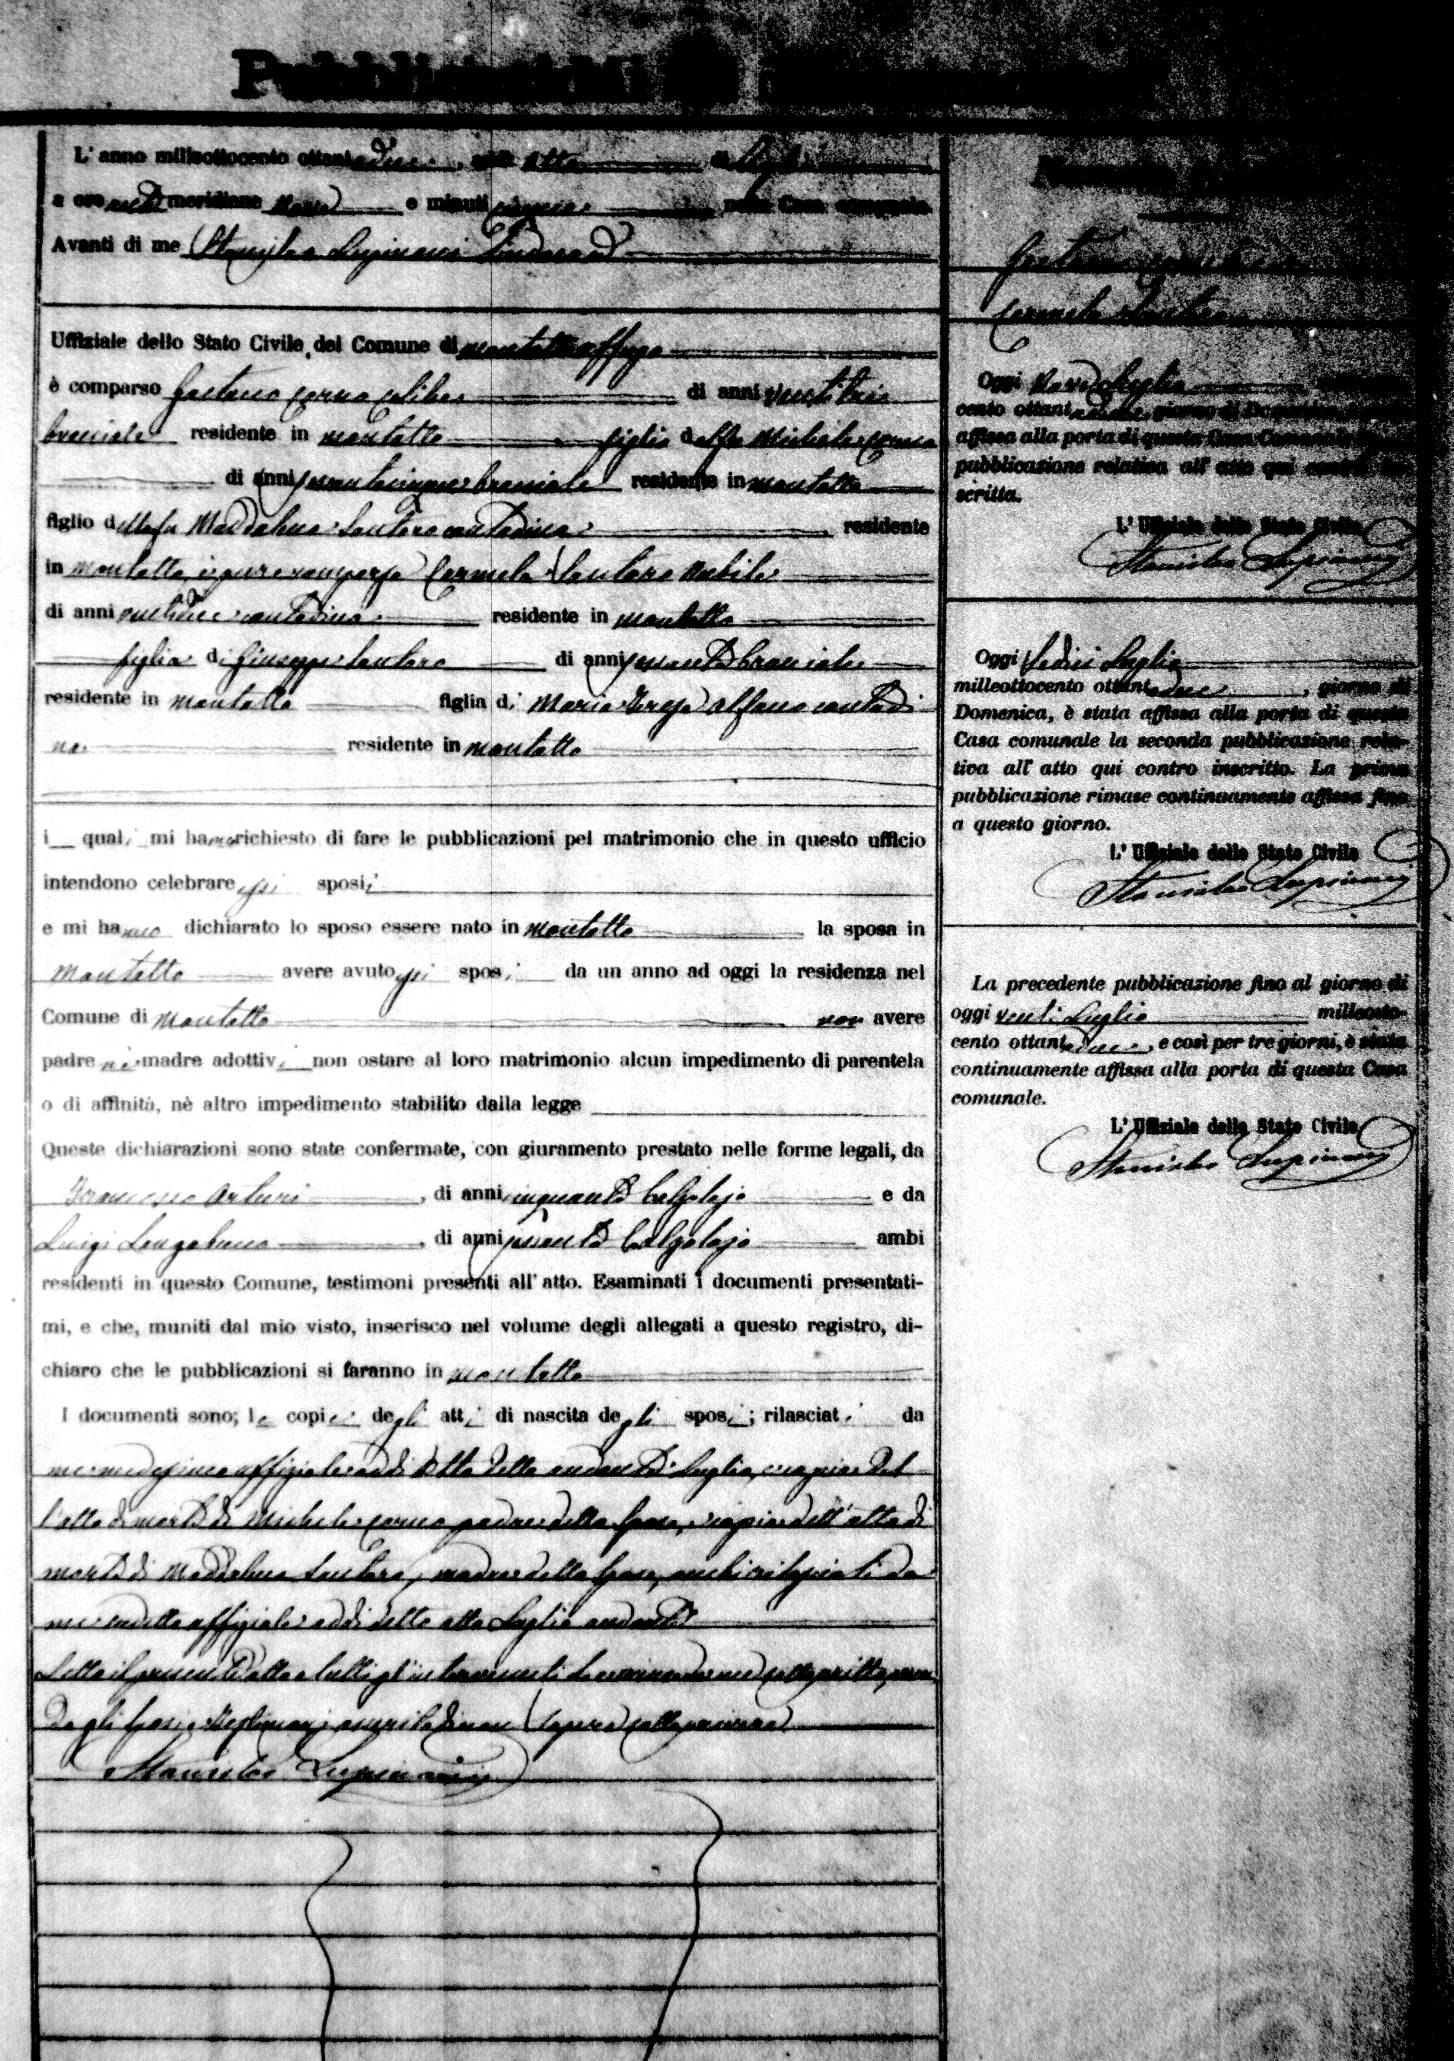 Pubblicazioni di
L'anno milleottocento ottantadue, addì otto di Luglio
a ore anti meridiane nove e minuti nella Casa comunale.
Avanti di me Stanislao Lupinacci Sindaco
Uffiziale dello Stato Civile del Comune di Montalto Uffugo
è comparso Gaetano celibe di anni ventitrè
bracciale residente in Montalto figlio del fu Michele
di anni sessantacinque bracciale residente in Montalto
figlio della fu Maddalena Santoro contadina residente
in Montalto, è pure comparsa Carmela Santoro nubile
di anni contadina residente in Montalto
figlia di Giuseppe Santoro di anni sessanta bracciale
residente in Montalto figlia di Maria Teresa Alfano contadi
na residente in Montalto
i quali mi hanno richiesto di fare le pubblicazioni pel matrimonio che in questo ufficio
intendono celebrare essi sposi
e mi hanno dichiarato lo sposo essere nato in Montalto la sposa in
Montalto avere avuto essi sposi da un anno ad oggi la residenza nel
Comune di Montalto non avere
padre nè madre adottivi non ostare al loro matrimonio alcun impedimento di parentela
o di affinità, nè altro impedimento stabilito dalla legge
Queste dichiarazioni sono state confermate, con giuramento prestato nelle forme legali, da
Francesco Arturi, di anni cinquanta Calzolajo e da
Luigi Longobucco, di anni sessanta Calzolajo ambi
residenti in questo Comune, testimoni presenti all'atto. Esaminati i documenti presentati-
mi, e che, muniti dal mio visto, inserisco nel volume degli allegati a questo registro, di-
chiaro che le pubblicazioni si faranno in Montalto
I documenti sono; le copie degli atti di nascita degli sposi; rilasciati da
me medesimo uffiziale addì otto dello andante Luglio, copia del
l'atto di morte di Michele padre dello sposo, copia dell'atto di
morte di Maddalena Santoro, madre dello sposo, anche rilasciati da
me suddetto uffiziale addì detto otto Luglio andante
Letto il presente atto a tutti gl'intervenuti da me sottoscritto,
dagli sposi e testimoni asserito di non sapere sottoscrivere
Stanislao Lupinacci
Gaetano
Carmela Santoro
Oggi nove Luglio
cento ottantadue, giorno di Domenica,
affissa alla porta di questa Casa Comunale
pubblicazione relativa all'atto qui contro
scritta.
L'Uffiziale dello Stato Civile
Stanislao Lupinacci
Oggi sedici Luglio
milleottocento ottantadue, giorno di
Domenica, è stata affissa alla porta di questa
Casa comunale la seconda pubblicazione rela-
tiva all'atto qui contro inscritto. La prima
pubblicazione rimase continuamente affissa fino
a questo giorno.
L'Uffiziale dello Stato Civile
Stanislao Lupinacci
La precedente pubblicazione fino al giorno di
oggi venti Luglio milleotto-
cento ottantadue, e così per tre giorni, è stata
continuamente affissa alla porta di questa Casa
comunale.
L'Uffiziale dello Stato Civile
Stanislao Lupinacci